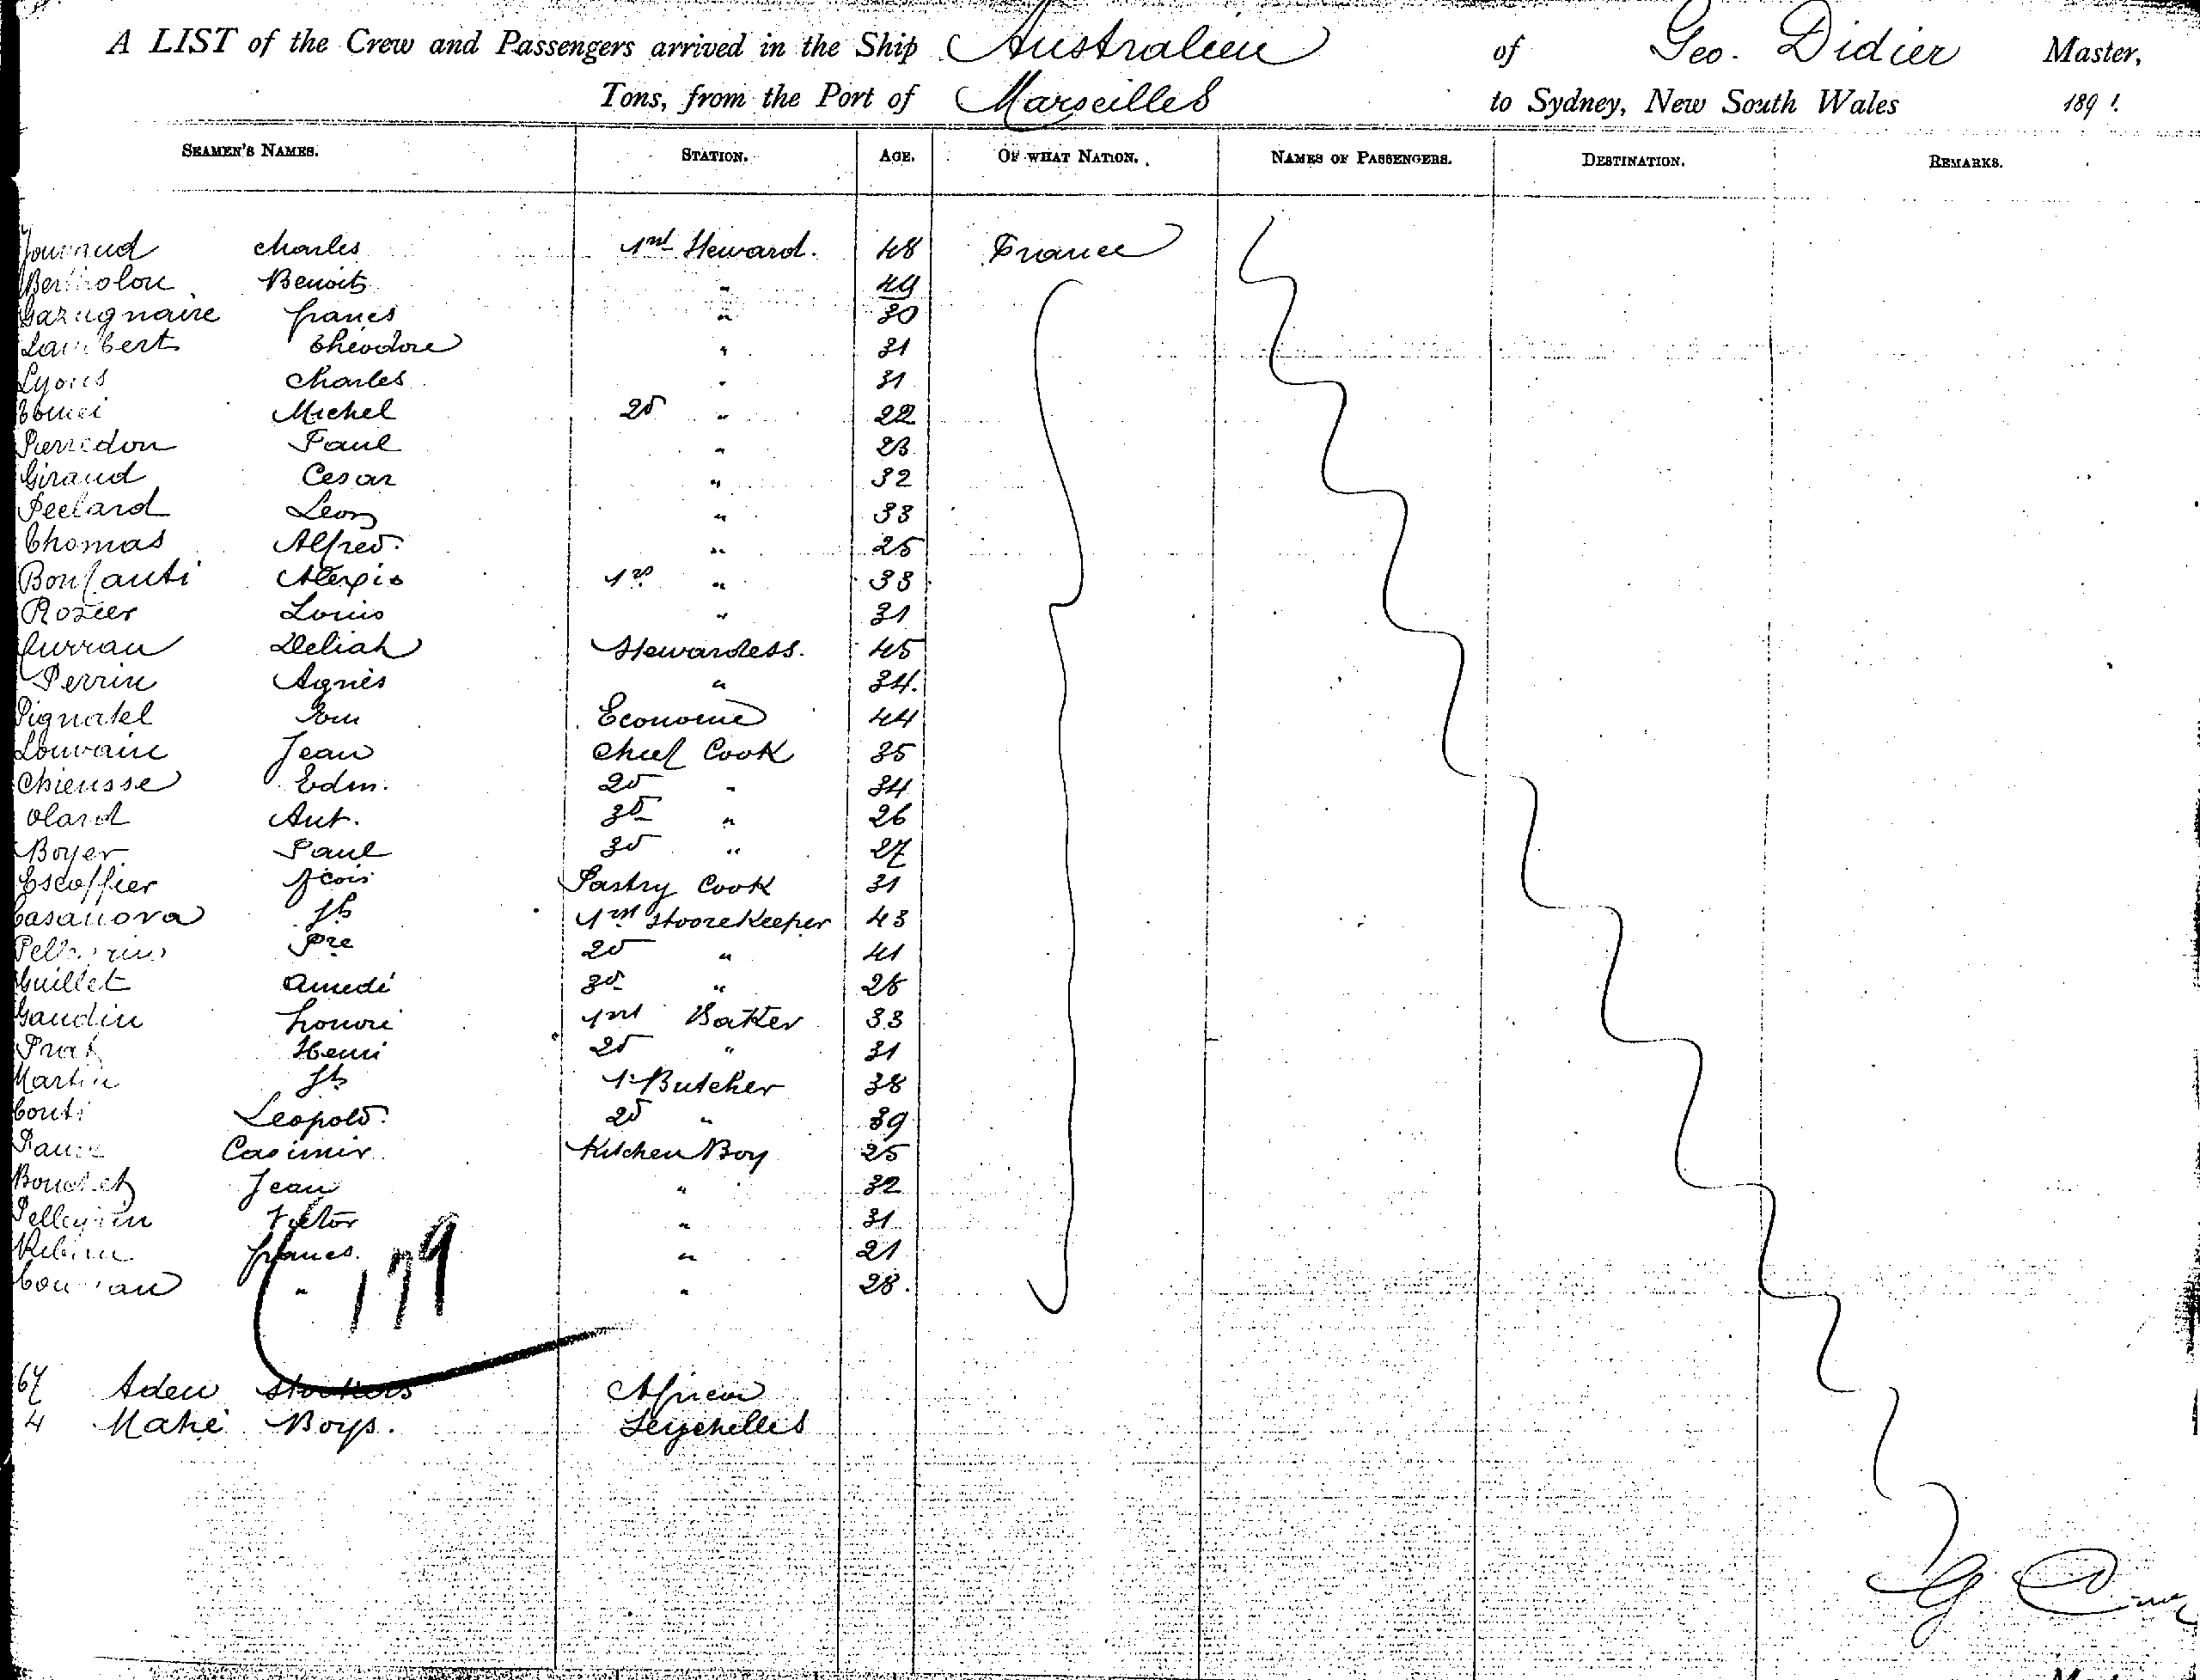 A LIST of the Crew and Passengers arrived in the Ship Australien of Geo. Didier Master,
Tons, from the Port of Marseilles to Sydney, New South Wales 1891.
SEAMEN'S NAMES. STATION. AGE. OF WHAT NATION. NAMES OF PASSENGERS. DESTINATION. REMARKS.
Charles 1rst Steward. 48 France
Benoit " 49
Gazagnaire francs " 30
Lambert Théodore " 31
Lyons Charles " 31
Michel 2d " 22
Pierredon Paul " 23
Giraud Cesar " 32
Peelard Leon " 33
Thomas Alfred. " 25
Bonfanti Alexis 1rs " 33
Rozier Louis " 31
Curran Deliah Stewardess. 45
Perrin Agnès " 34.
Pignatel Econome 44
Louvain Jean Chief Cook 35
Chieusse Edm. 2d " 34
Olard Ant. 3d " 26
Boyer Paul 3d " 27
Escoffier fcois Pastry Cook 31
Casanova Jh 1rst Stoorekeeper 43
Pre 2d " 41
Guillet Amedé 3d " 28
Gaudin honoré 1rst Baker 33
Prat Henri 2d " 31
Martin Jh 1r Butcher 38
Conti Leopold. 2d " 39
Casimir Kitchen Boy 25
Bouchet Jean " 32
Pellegrin Victor " 31
francs. " 21
" " 28.
179
67 Aden Stockers African
4 Mahé Boys. Seychelles